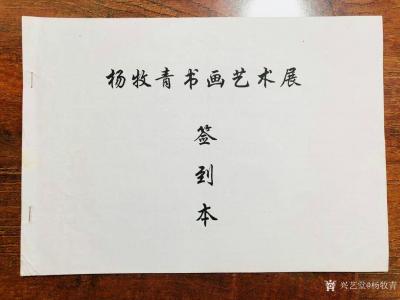 杨牧青书画艺术展
签
到
本
兴艺堂@杨牧青